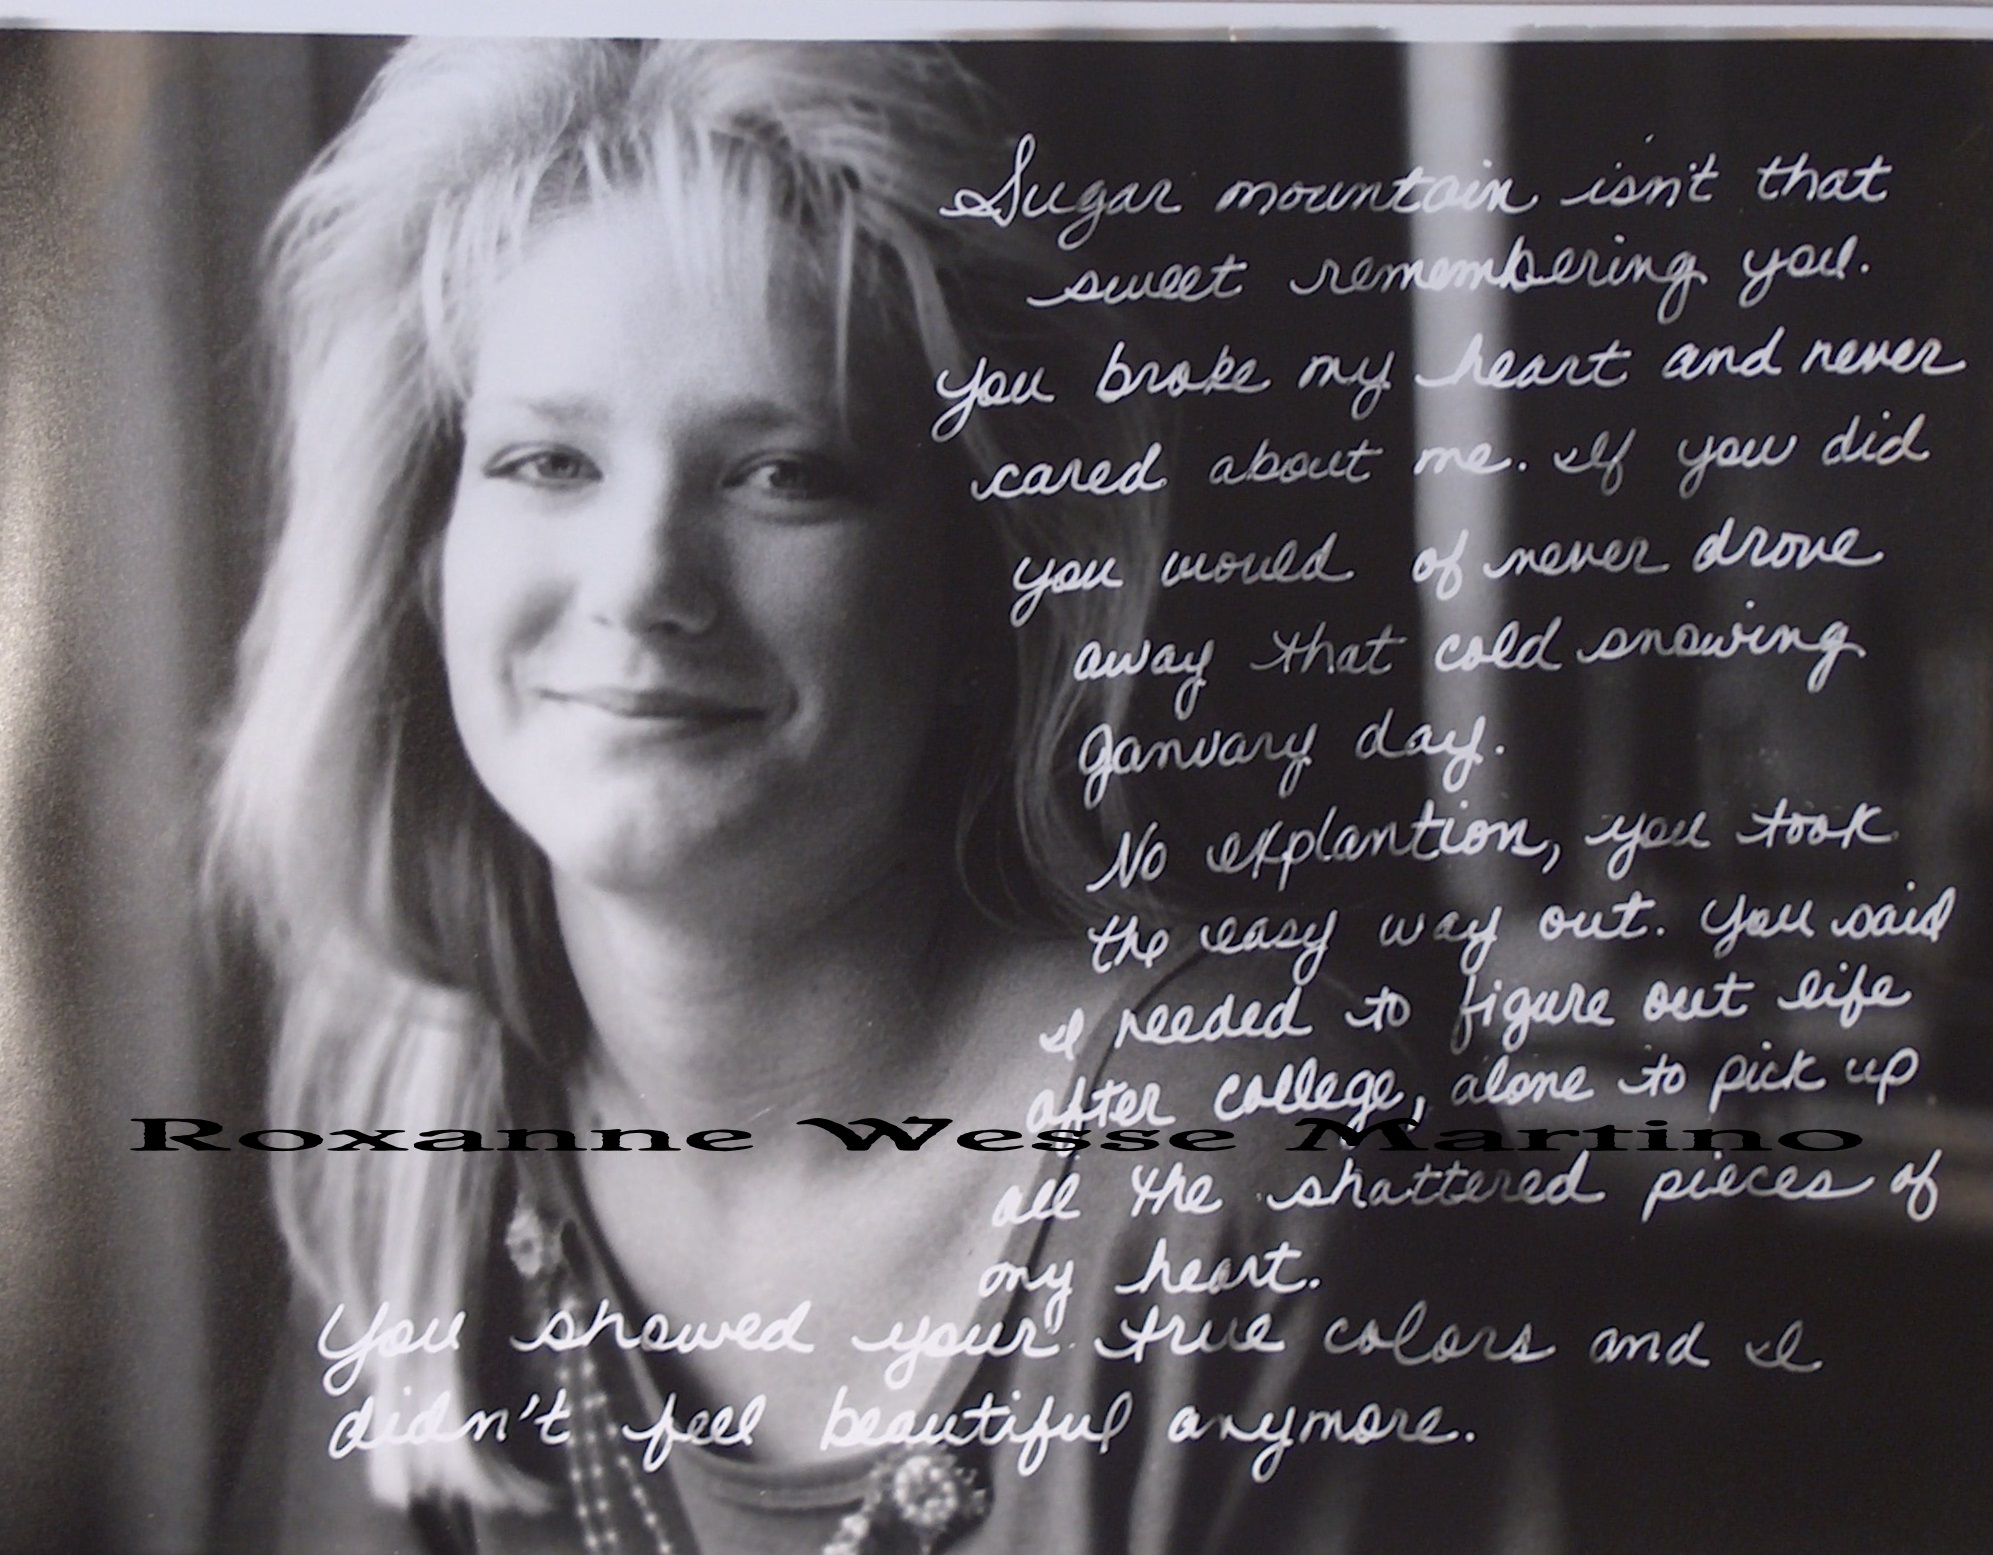 Sugar mountain isn't that
sweet remembering you.
you broke my heart and never
cared about me. If you did
you would of never drove
away that cold snowing
January day.
No explantion, you took
the easy way out. You said
I needed to figure out life
after college, alone to pick up
Roxanne Wesse Martino
all the shattered pieces of
my heart.
You showed your true colors and I
didn't feel beautiful anymore.